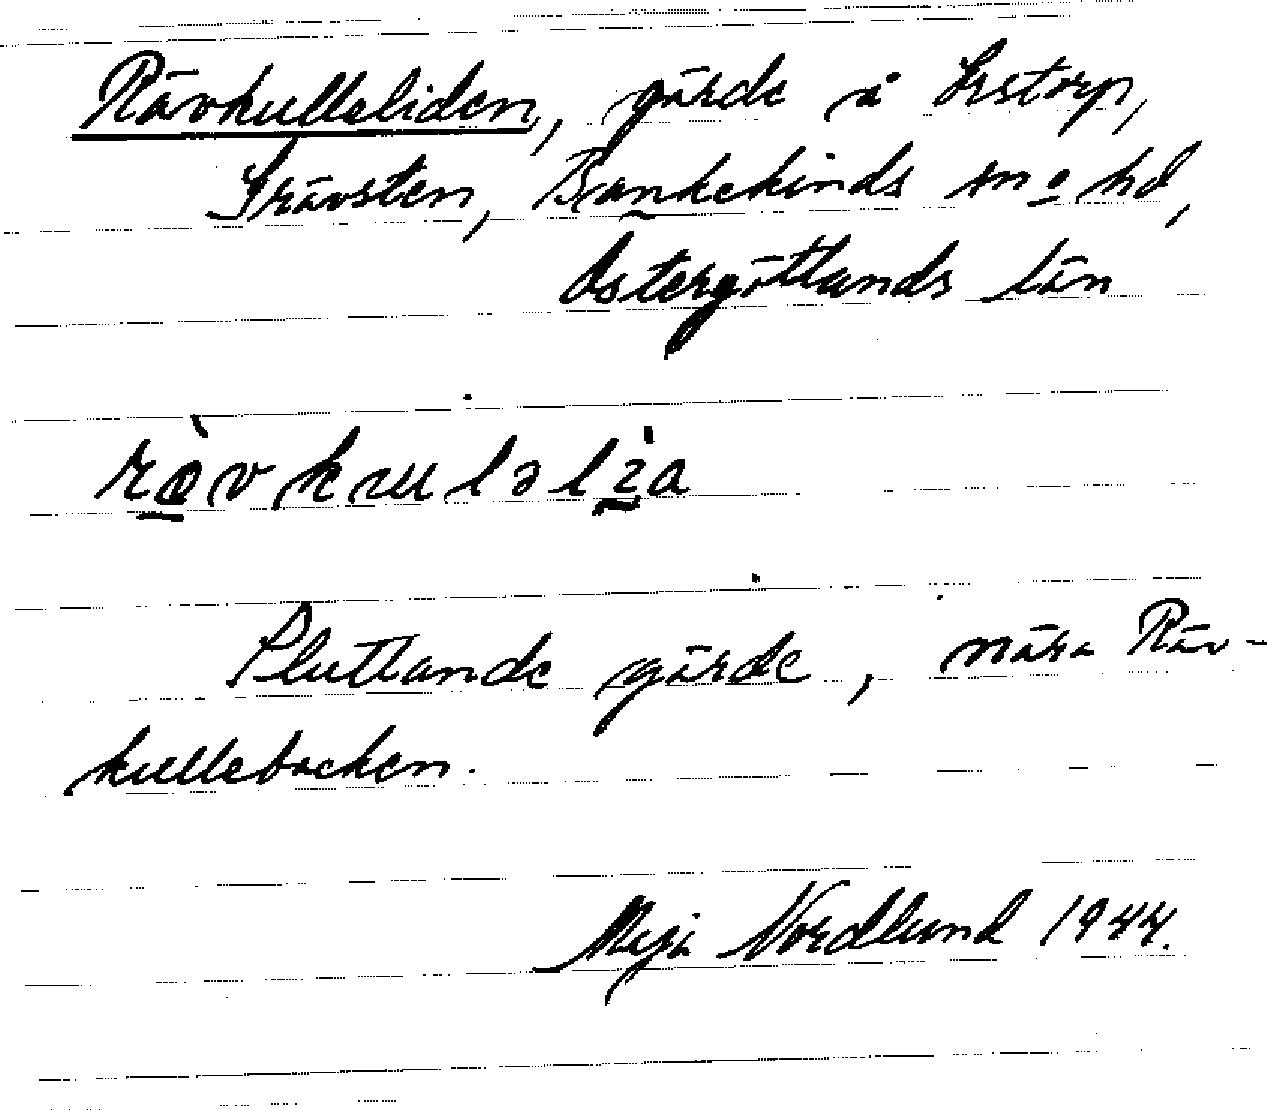 Rävkulleliden, gärde å Lrstorp,
Grävsten, Bankekinds sn o hd,
Östergötlands län
rävkuləlia
Sluttande gärde, nära Räv-
kullebacken.
Maja Nordlund 1944.